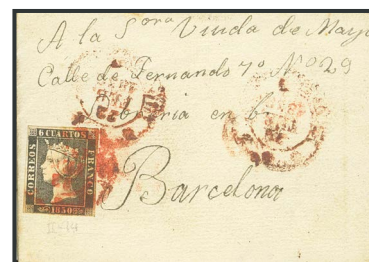 A la Sora Viuda de Mayo
Calle de Fernando 7º Nº 29
en
Barcelona
6 CUARTOS
CORREOS
FRANCO
1850
II-19